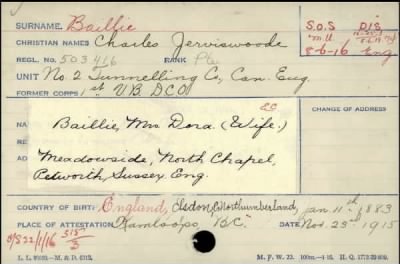 SURNAME. Baillie
CHRISTIAN NAMES Charles Jerviswoode
REGL. No. 503416 RANK Pte
UNIT No. 2 Tunnelling Co, Can. Eng.
FORMER CORPS 1st V.B. DCO
S.O.S DIS
"M.U.
8-6-16 Eng
EC
CHANGE OF ADDRESS
NA Baillie, Mrs Dora (Wife.)
RE
AD Meadowside, North Chapel,
Petworth, Sussex, Eng.
COUNTRY OF BIRTH England, Northumberland, Jan 11th 1883
PLACE OF ATTESTATION Kamloops B.C. DATE Nov 23rd 1915
O/S 22/1/16 515/3
L. L. M. & D. 6312. M. F. W. 22. 100m.-1-16. H. Q. 1772-39-